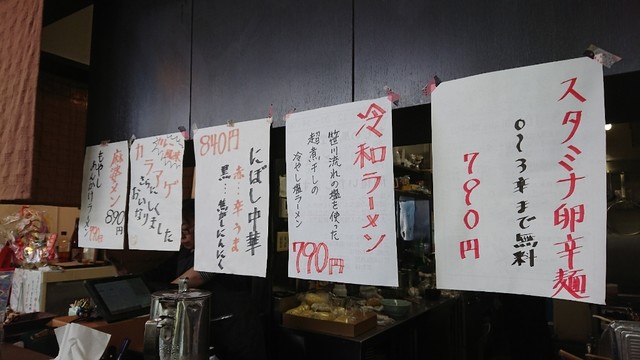 スタミナ卵辛麺
0〜3辛まで無料
790円
冷和ラーメン
笹川流れの塩を使った
超煮干しの
冷やし塩ラーメン
790円
にぼし中華
赤…辛うま
黒…焦がしにんにく
840円
カレー風味
カラアゲ
さらに
おいしく
なりました
麻婆メン
890円
もやし
あんかけラーメン